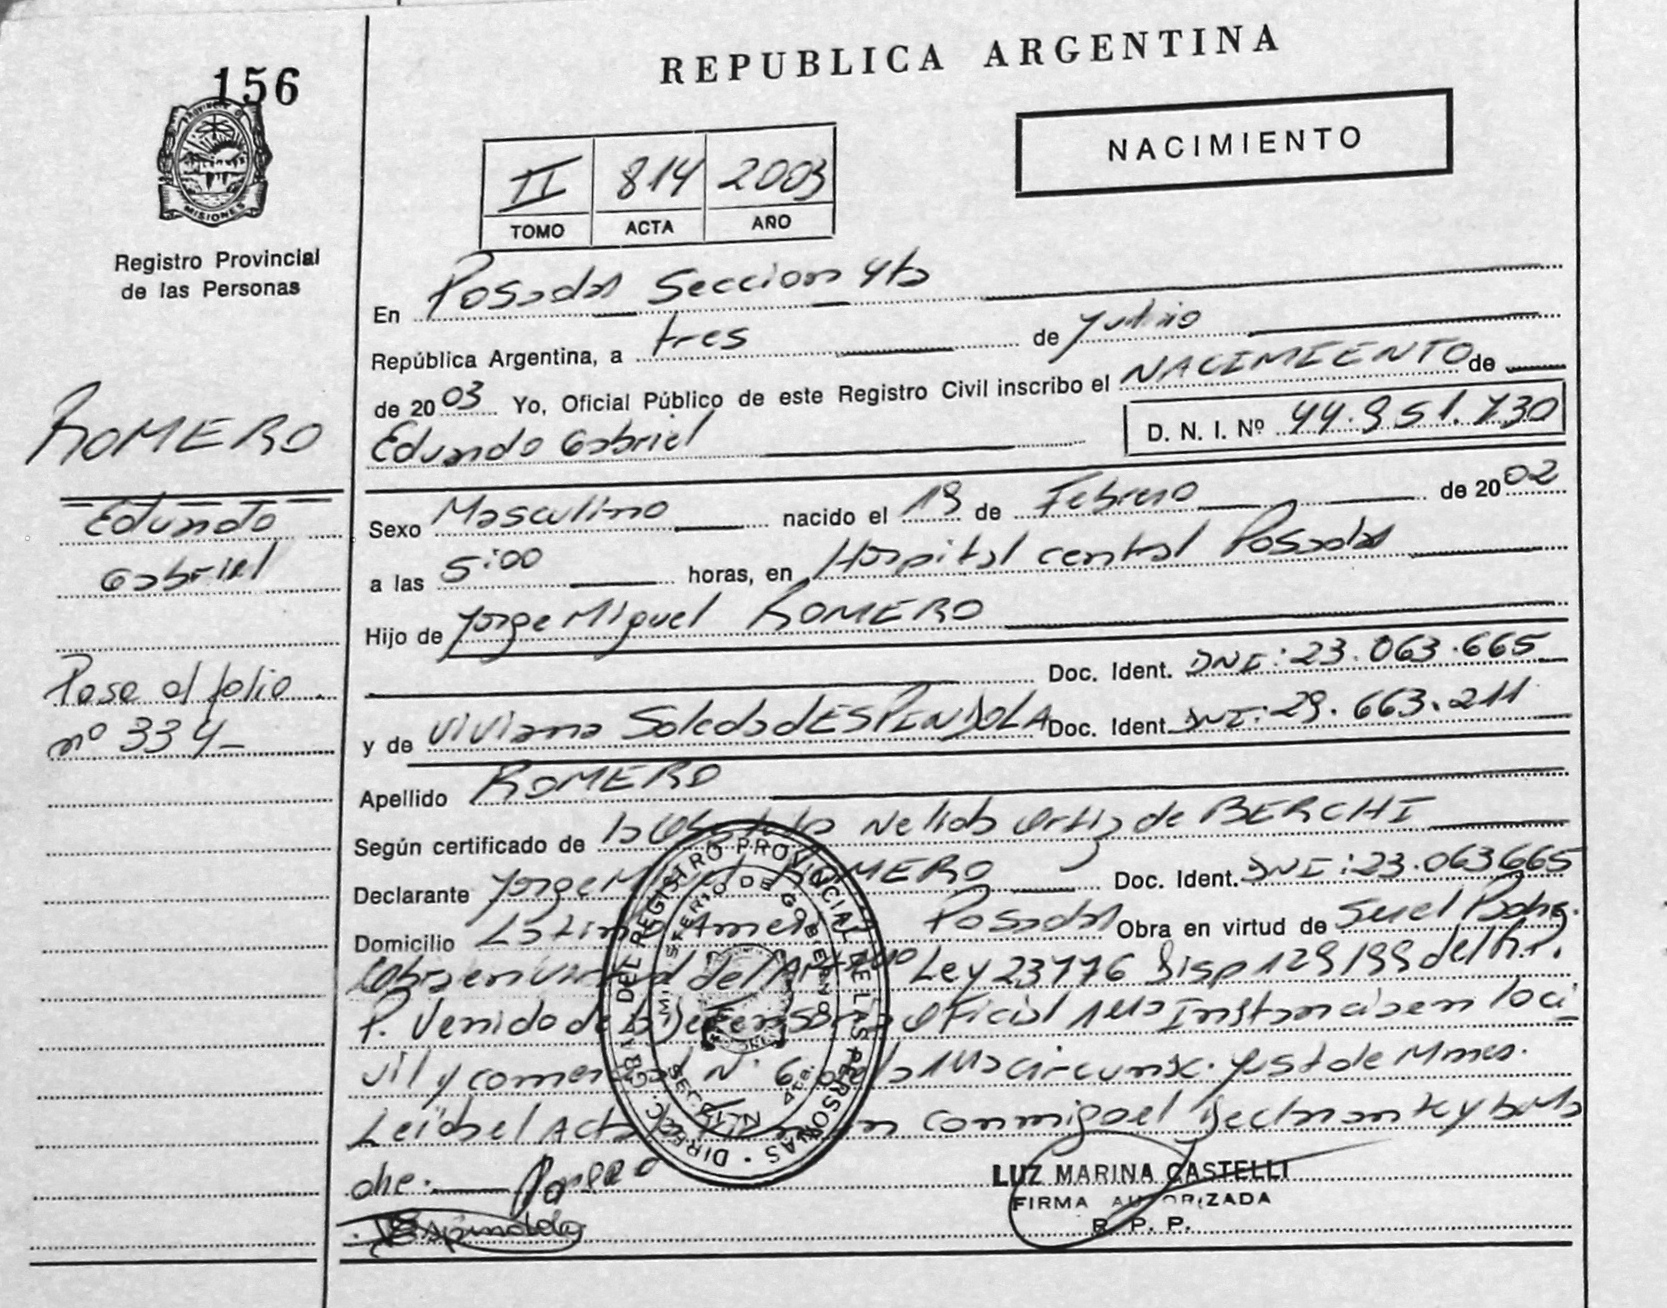 156
REPUBLICA ARGENTINA
PROVINCIA DE
MISIONES
Registro Provincial
de las Personas
NACIMIENTO
II 814 2003
TOMO ACTA AÑO
En Posadas Seccion 4ta
República Argentina, a tres de
de 2003 Yo, Oficial Público de este Registro Civil inscribo el NACIMIENTO de
Eduardo Gabriel D. N. I. Nº 44.951.730
ROMERO
Eduardo
Gabriel
Pase al folio
nº 334
Sexo Masculino nacido el 19 de Febrero de 2002
a las 5:00 horas, en Hospital central Posadas
Hijo de Jorge Miguel ROMERO
Doc. Ident. DNI: 23.063.665
y de Viviana Soledad ESPINDOLA Doc. Ident. DNI: 29.663.211
Apellido ROMERO
Según certificado de la Obstetra Nelida Ortiz de BERCHI
Declarante Jorge Miguel ROMERO Doc. Ident. DNI: 23.063665
Domicilio Latino Posadas Obra en virtud de
del Ley 23776 Disp 129/99 del R.P.
P. Venido de la Defensoria Oficial 1ra Instancia en lo ci
vil y comercial Nº 6 de la 1ra circunsc. Just de Mnes.
Leida el Acta la conmigo el Declarante y la Ma
dre.
Espindola
DIREC. GRAL. DEL REGISTRO PROVINCIAL DE LAS PERSONAS
MINISTERIO DE GOBIERNO
LUZ MARINA CASTELLI
FIRMA AUTORIZADA
R. P. P.